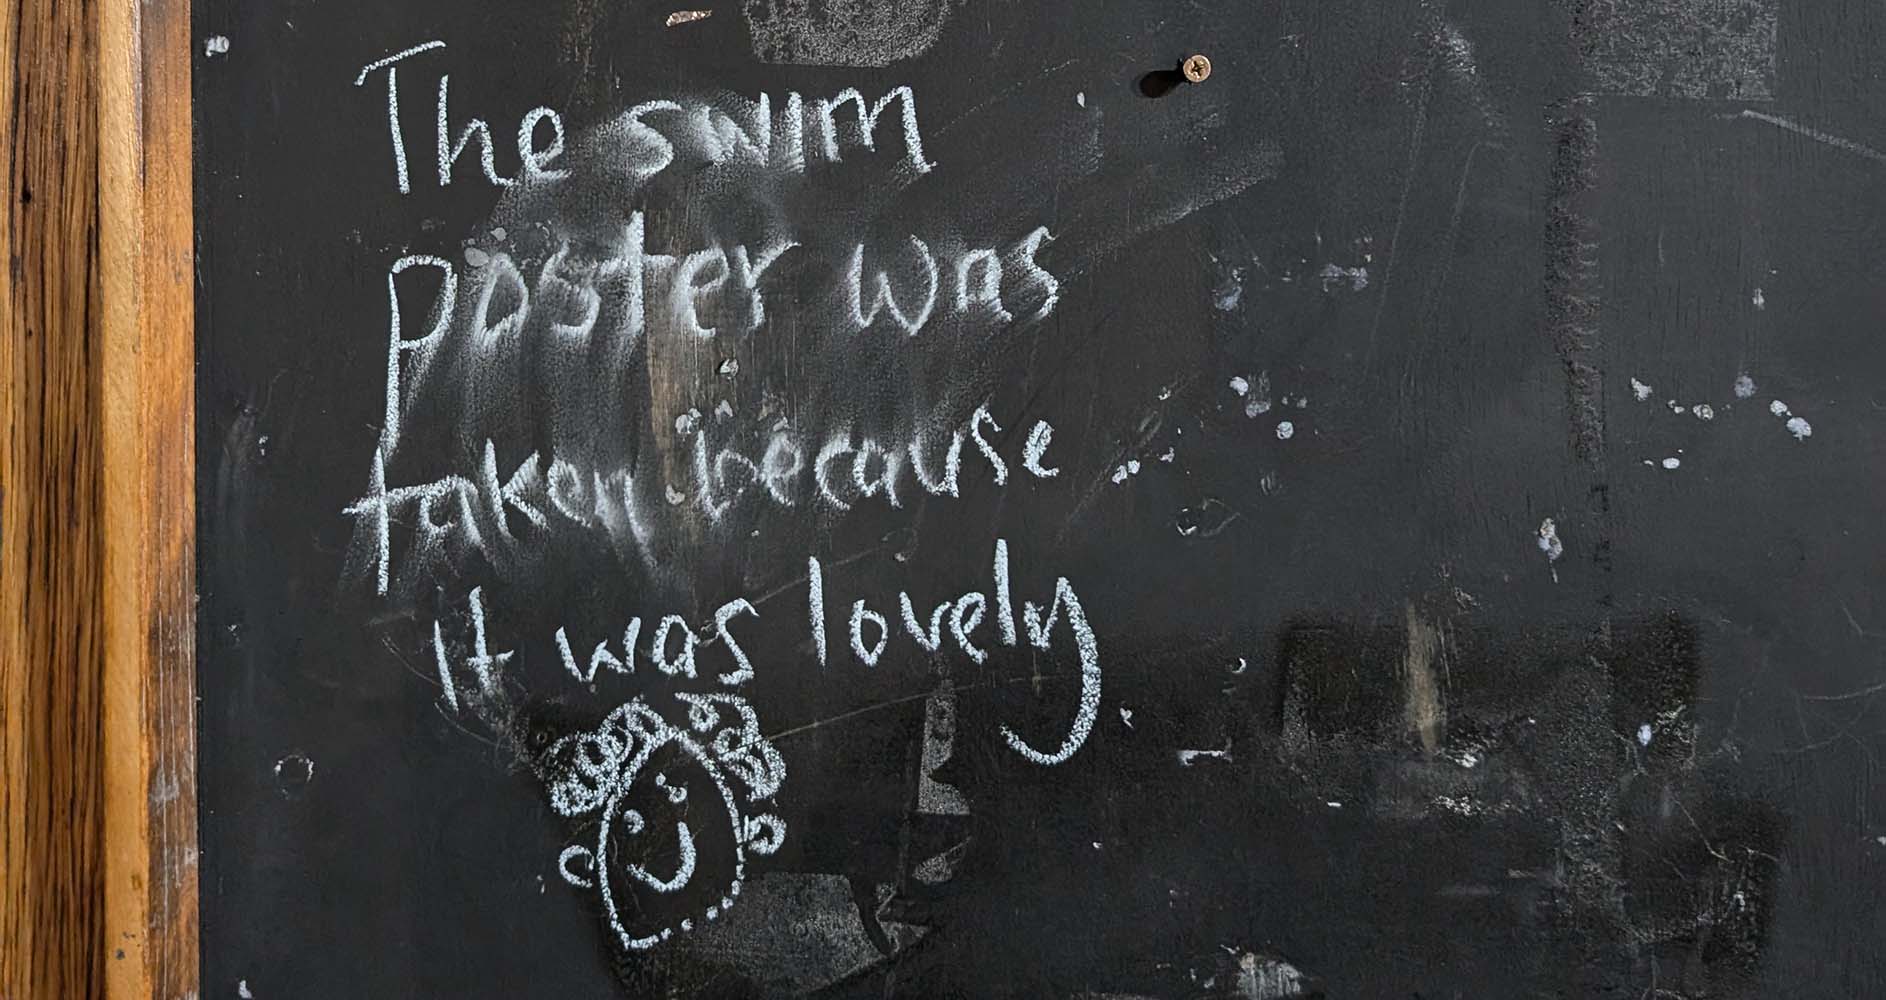 The swim
poster was
taken because
It was lovely